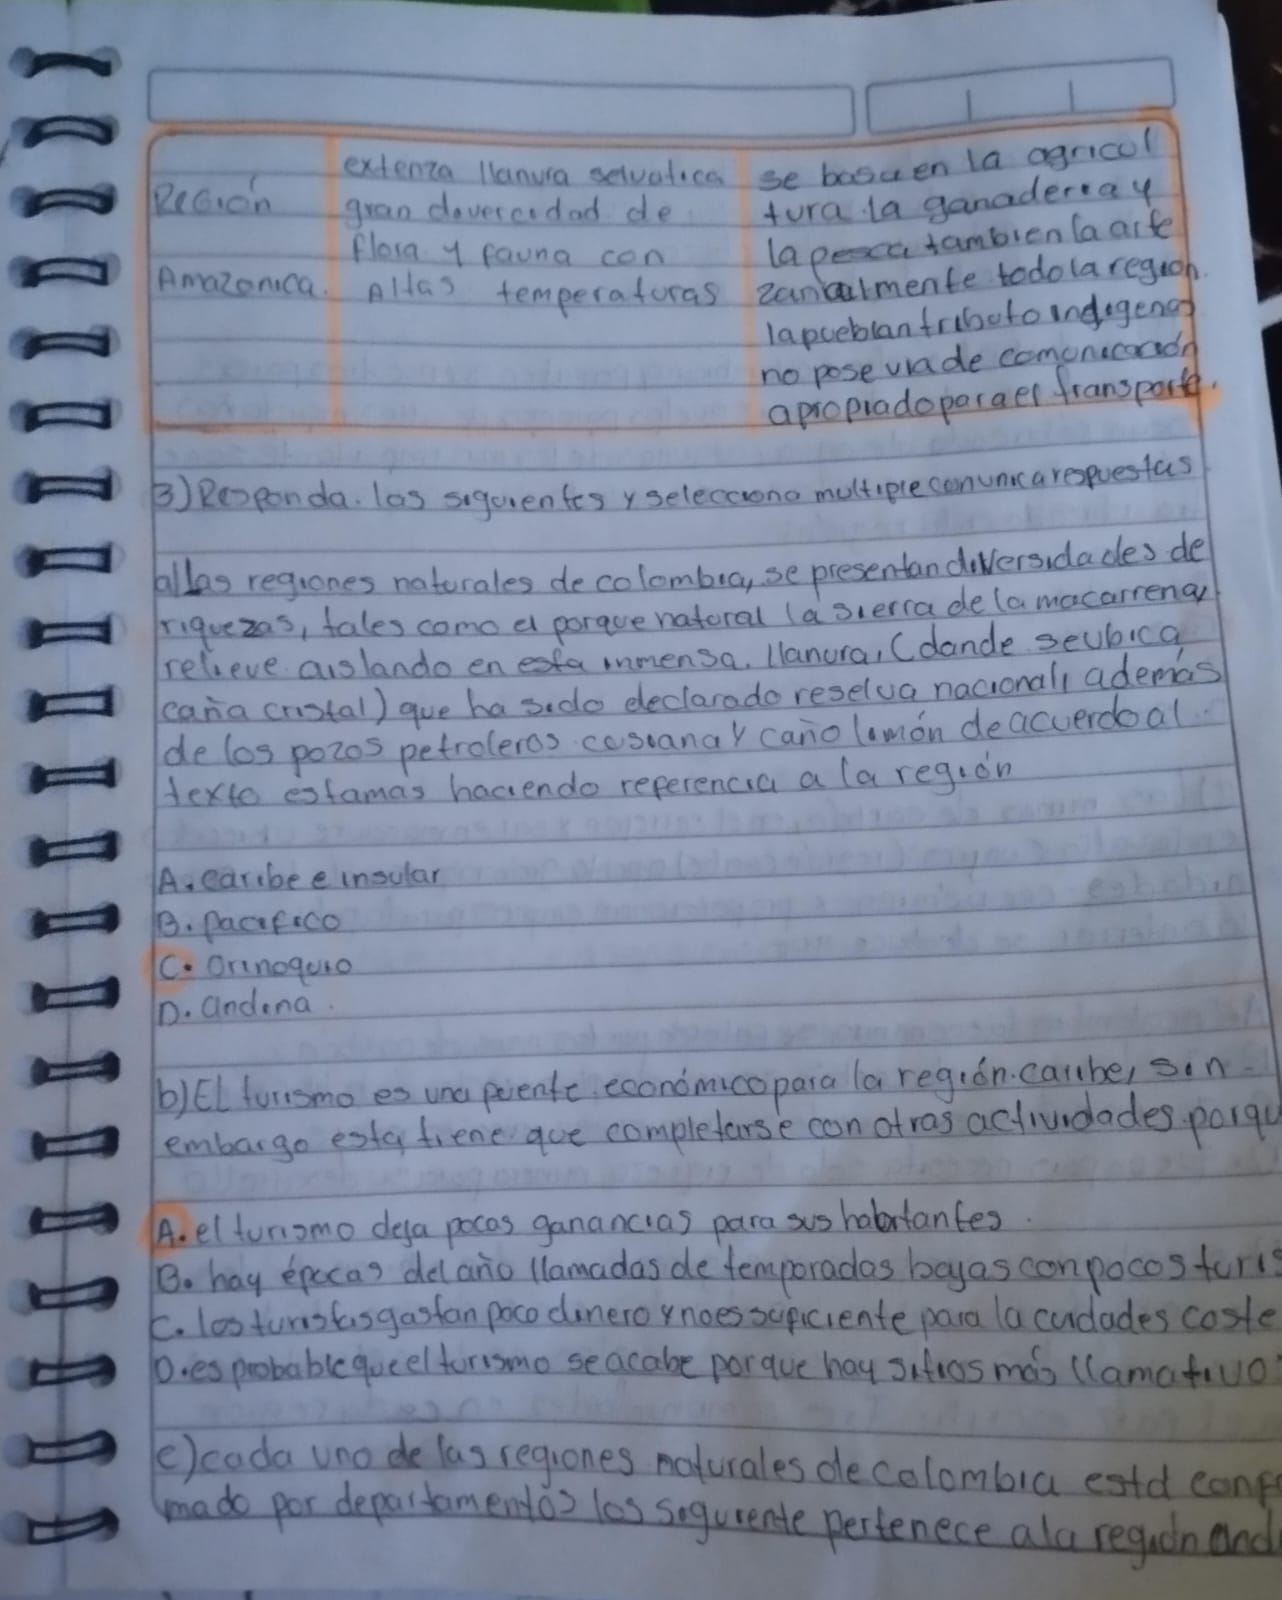 Región
Amazonica.
extenza llanura selvatica
gran divercidad de
flora y fauna con
Altas temperaturas
se basa en la agricol
tura la ganaderia y
la pesca tambien la arte
zanalmente todo la region
la pueblan tributo indigenas
no pose via de comunicación
apropiado para el transporte.
3) Responda. las siguientes y selecciona multiple con unica respuestas
a) las regiones naturales de colombia, se presentan diversidades de
riquezas, tales como el porque natural la sierra de la macarrena
relieve aislando en esta inmensa. llanura, (donde se ubica
caña cristal) que ha sido declarado reselva nacional, además
de los pozos petroleros cosiana y caño limón de acuerdo al
texto estamas haciendo referencia a la región
A. caribe e insular
B. pacifico
C. Orinoquio
D. andina.
b) El turismo es una puente económico para la región caribe, sin
embargo esta tiene que completarse con otras actividades porqu
A. el turismo deja pocas ganancias para sus habitantes.
B. hay épocas del año llamadas de temporadas bajas con pocos turis
C. los turistas gastan poco dinero y no es suficiente para la ciudades coste
D. es probable que el turismo se acabe porque hay sitios más llamativo
c) cada uno de las regiones naturales de colombia está conf
mado por departamentos los siguiente pertenece a la región and